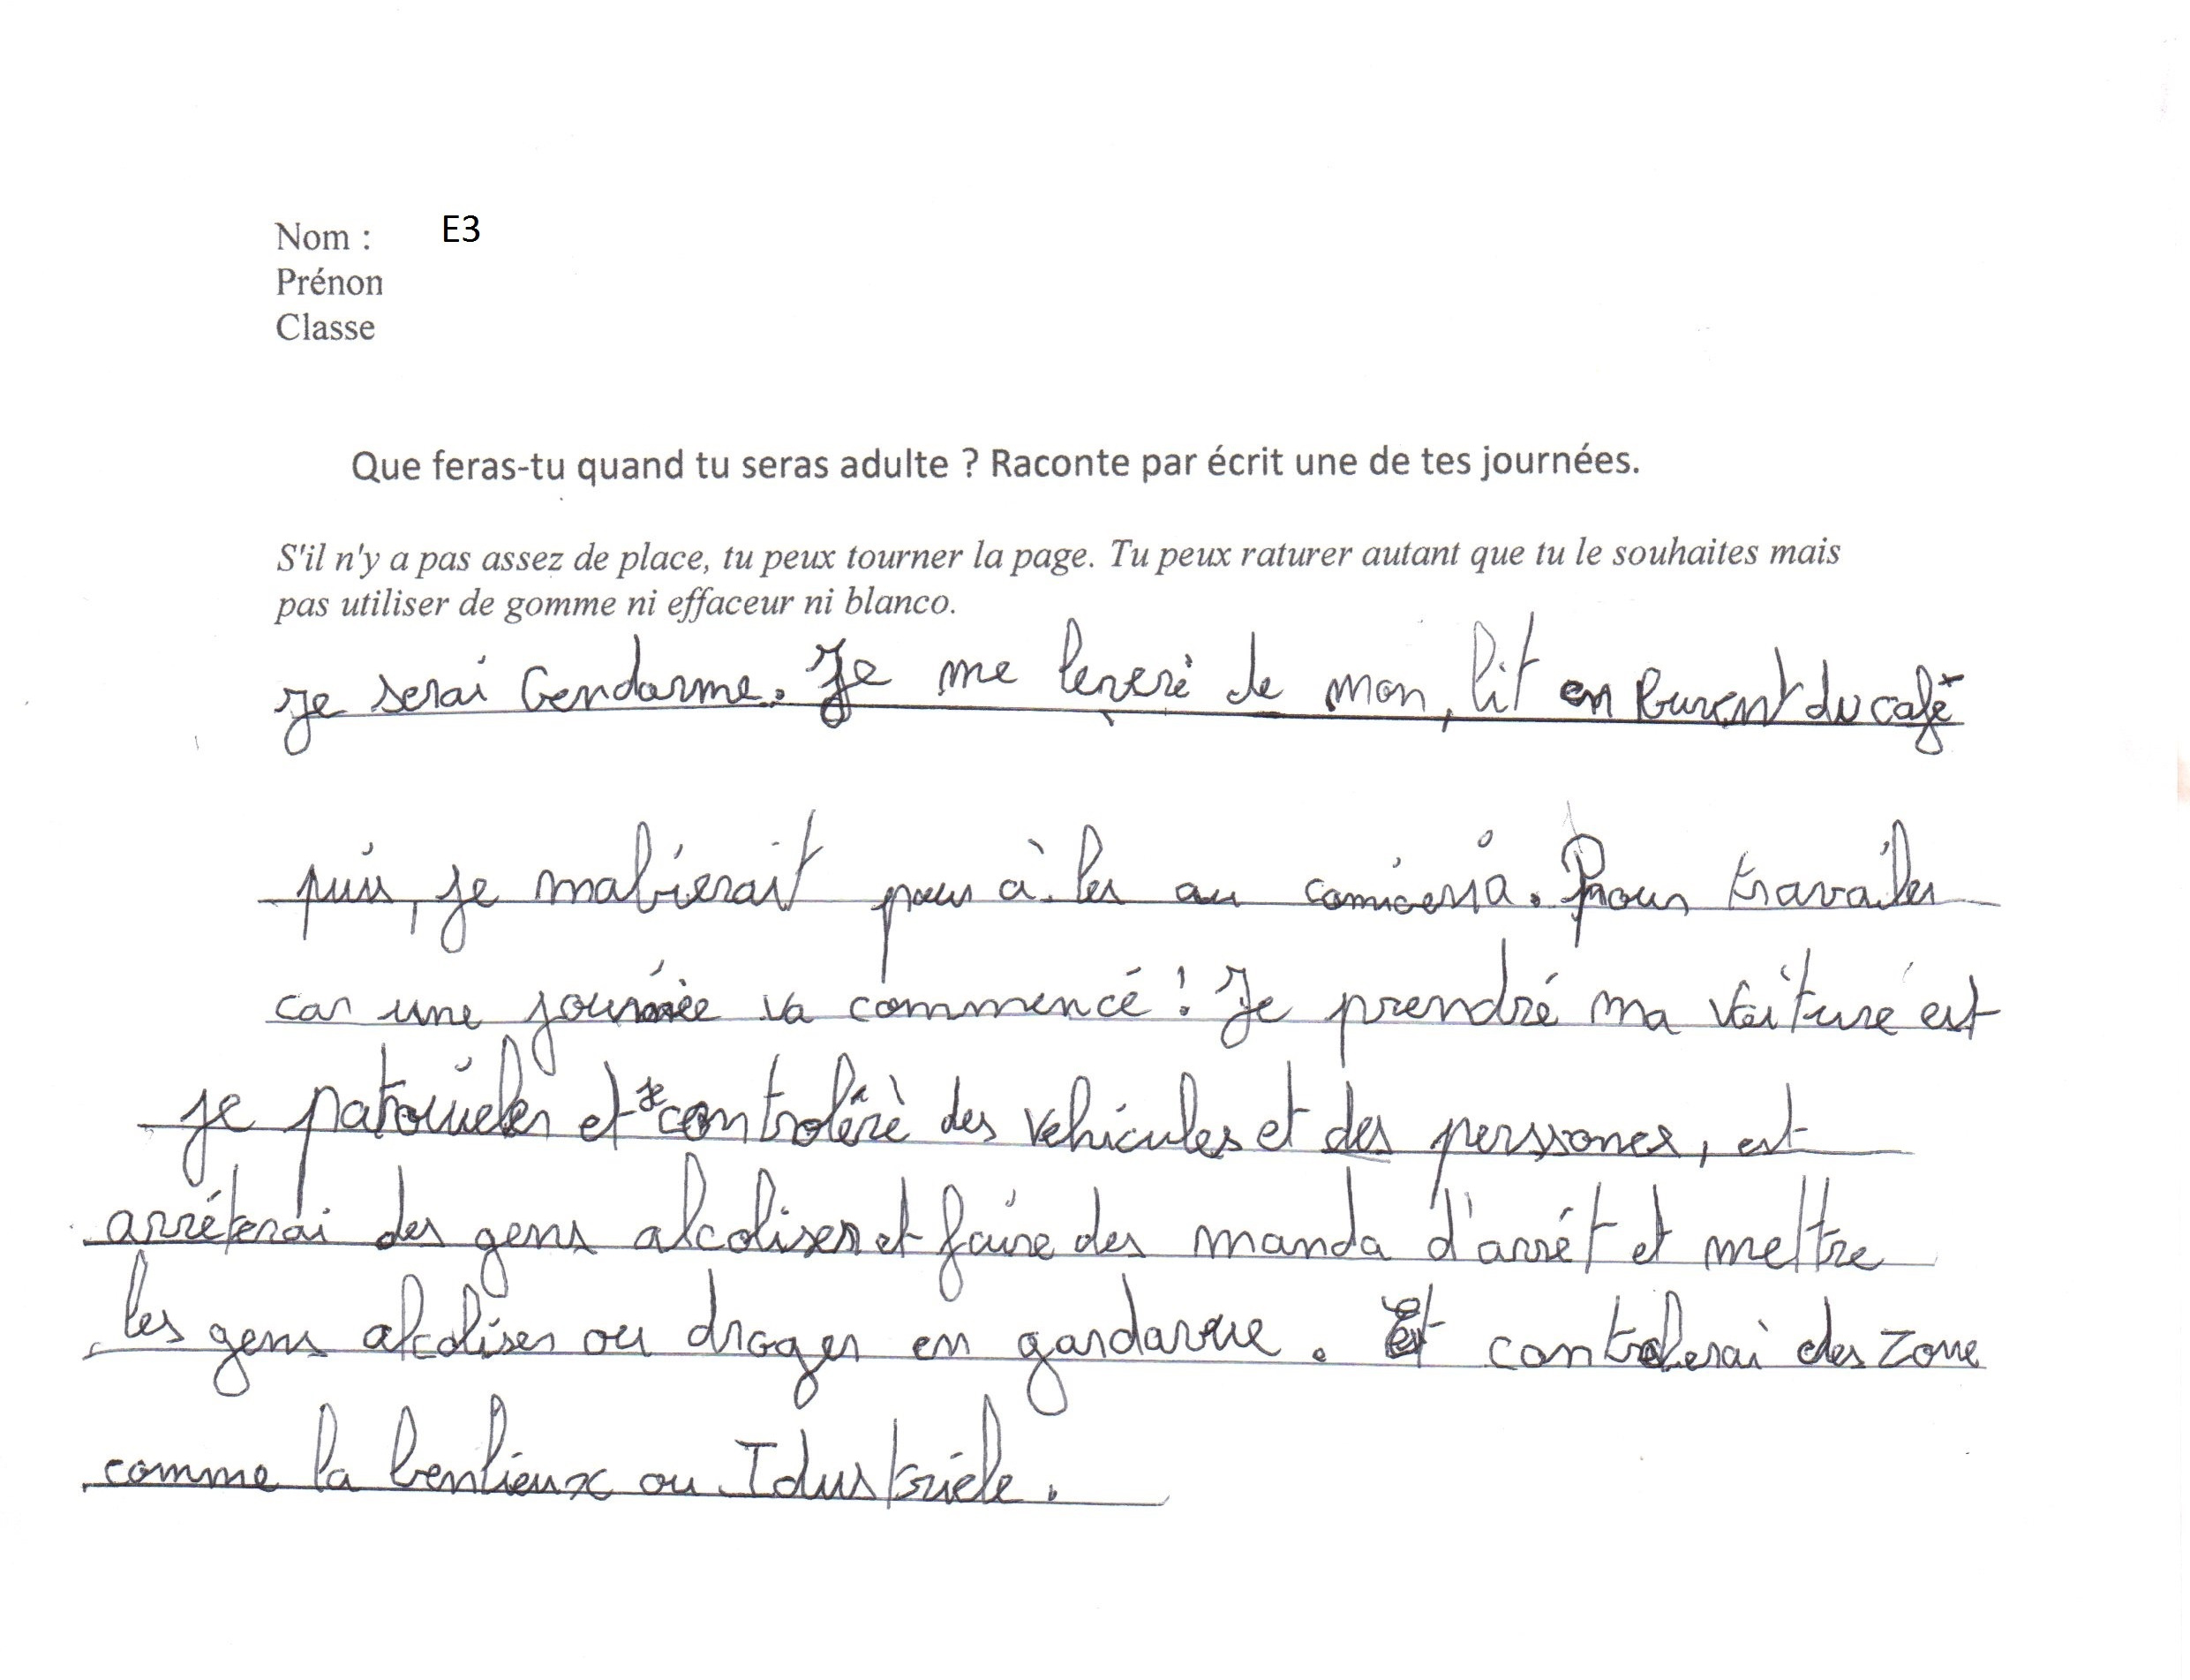 Nom : E3
Prénon
Classe
Que feras-tu quand tu seras adulte ? Raconte par écrit une de tes journées.
S'il n'y a pas assez de place, tu peux tourner la page. Tu peux raturer autant que tu le souhaites mais
pas utiliser de gomme ni effaceur ni blanco.
je serai Gendarme. Je me leverè de mon, lit en buvent du café
puis, je mabierait pour à les au comicería. Pour travailer
car une journée va commencé ! Je prendré ma voiture est
je patouieler et je contrôlerè des vehicules et des perssones, est
arréterai des gens alcoliser et faire des manda d'arrét et mettre
les gens alcoliser ou droger en gardavue. Et controlerai des zone
comme la benlieux ou Idustrièle.